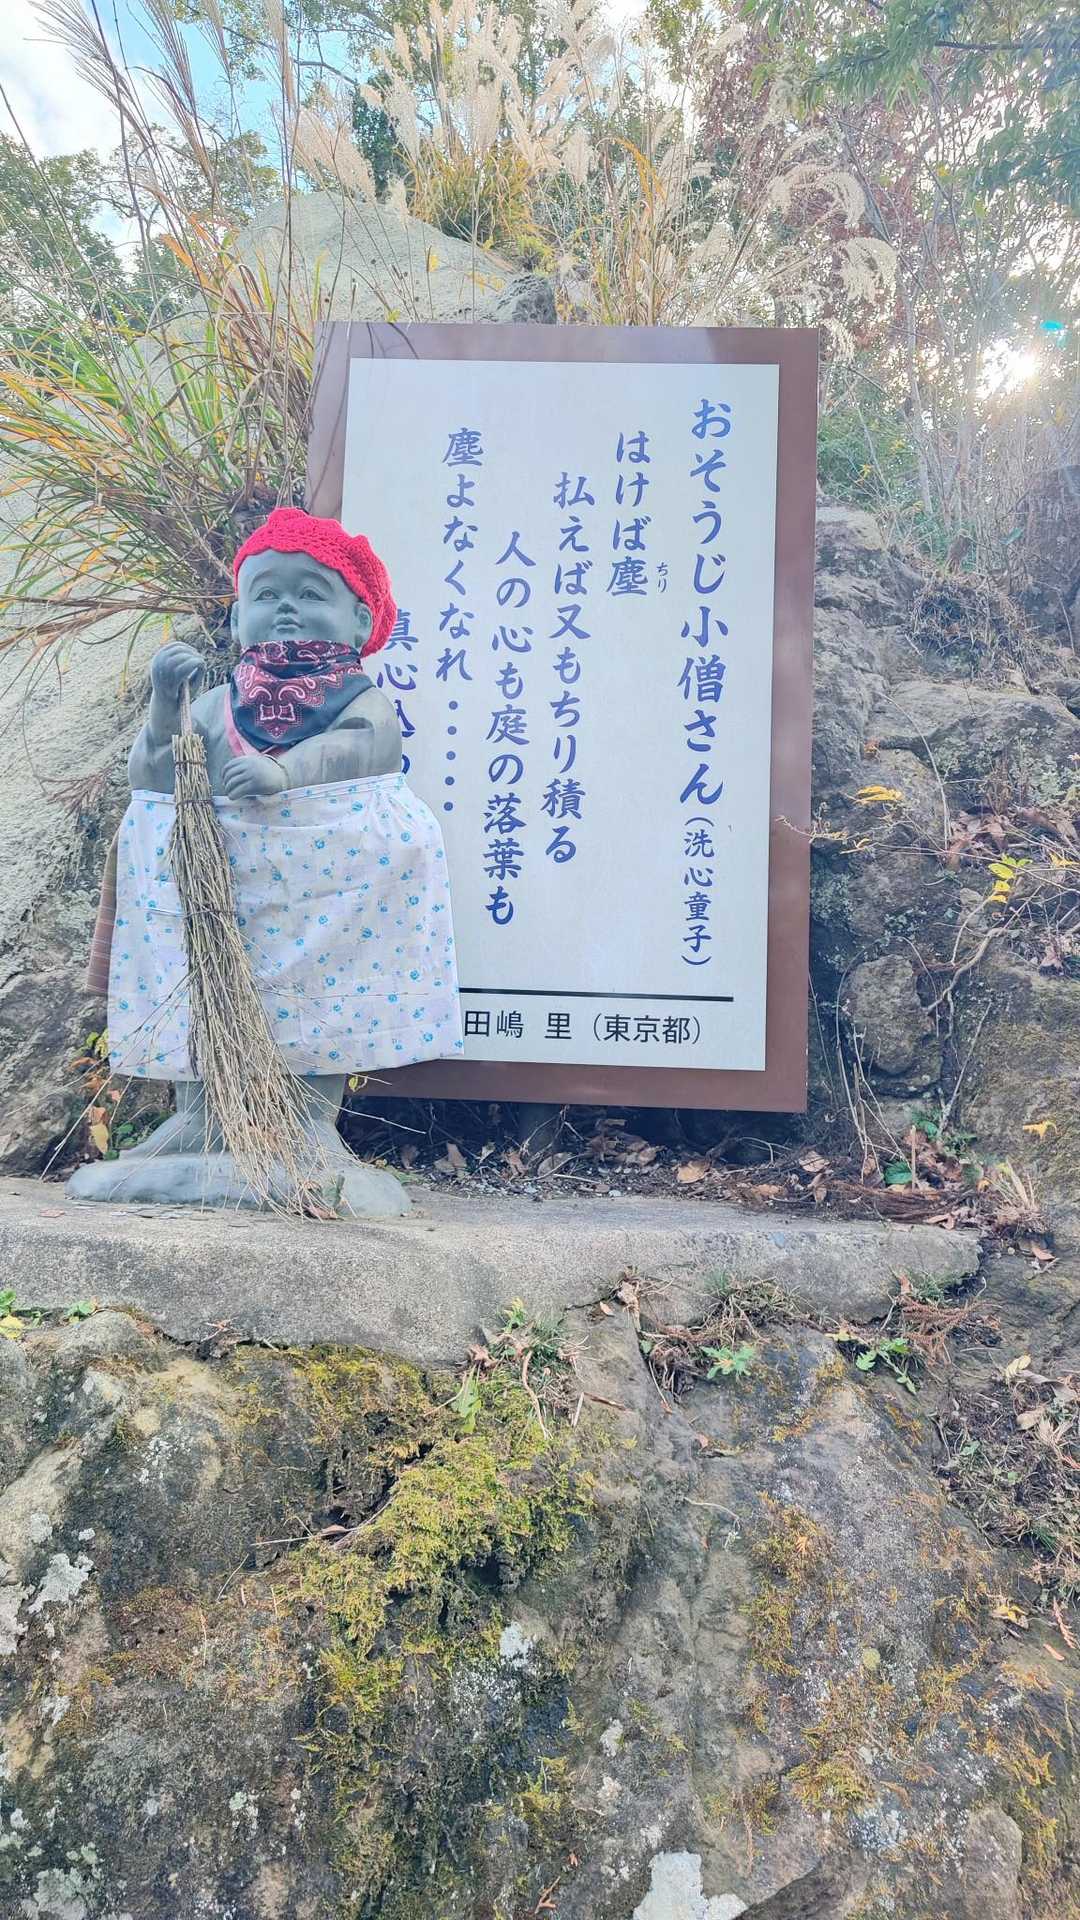 おそうじ小僧さん(洗心童子)
はけば塵
ちり
払えば又もちり積る
人の心も庭の落葉も
塵よなくなれ・・・・・
真心込
田嶋 里(東京都)